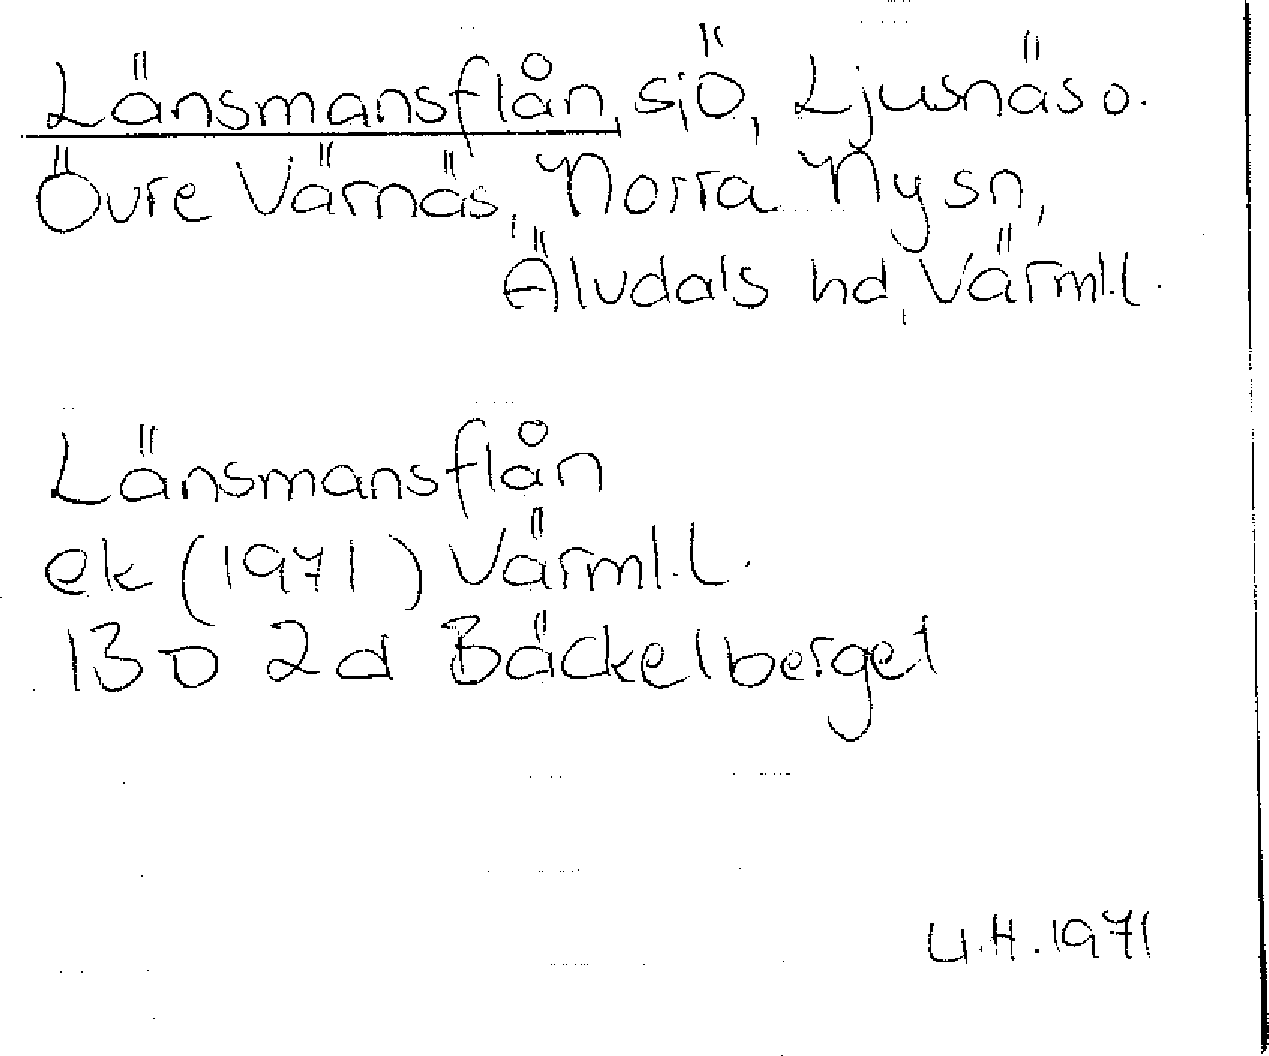 Länsmansflån, sjö, Ljusnäs o.
Övre Värnäs, Norra Ny sn,
Älvdals hd, Värml.l.
Länsmansflån
ek (1971) Värml.l.
13D 2d Bäckelberget
U.H. 1971